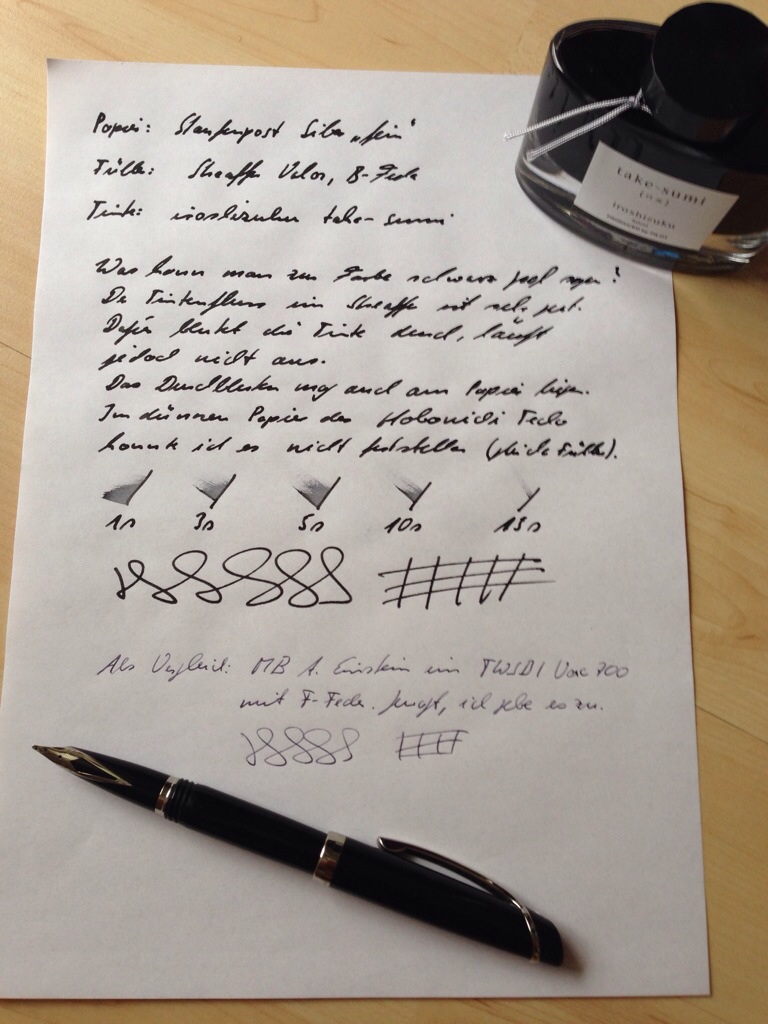 Papier: Staufenpost Silber „fein“
Füller: Sheaffer Valor, B-Feder
Tinte: iroshizuku take-sumi
take-sumi
iroshizuku
Was kann man zur Farbe schwarz groß sagen?
Der Tintenfluss im Sheaffer ist sehr gut.
Dafür blutet die Tinte durch, läuft
jedoch nicht aus.
Das Durchbluten mag auch am Papier liegen.
Im dünnen Papier des Hobonichi Techo
konnte ich es nicht feststellen (gleicher Füller).
1s 3s 5s 10s 15s
Als Vergleich: MB A. Einstein im TWSBI Vac 700
mit F-Feder. , ich gebe es zu.